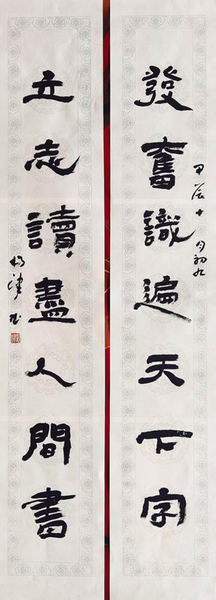 發奮識遍天下字
甲辰十月初九
立志讀盡人間書